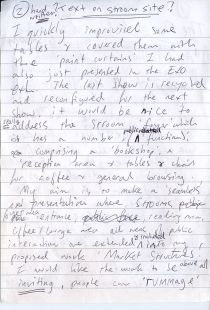 ② hand written? Text on stroom site?
I quickly improvised some
tables & covered them with
the paint curtains I had
also just presented in the EXO
Ex. The last show is recycled
and reconfigured for the next
show, it would be nice to
address the strroom foyer which
has number public functions,
comprising a 'bookshop', a
reception area & tables & chairs
for coffee & general browsing
My aim is to make a seamless
presentation where strooms,
entrance, reading room,
coffee / lounge area all were public
interactions are extended & included into my
proposed work 'Market Structures'.
I would like the work to be above all
inviting, people can 'RUMMAGE'